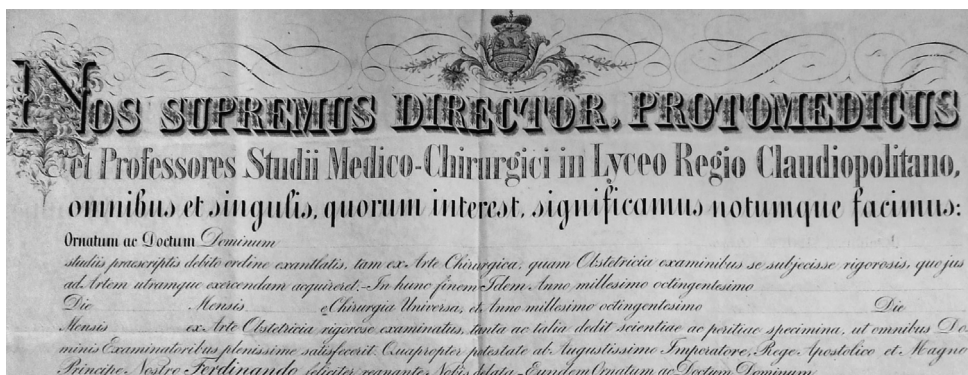 NOS SUPREMUS DIRECTOR, PROTOMEDICUS
et Professores Studii Medico-Chirurgici in Lyceo Regio Claudiopolitano,
omnibus et singulis, quorum interest, significamus notumque facimus:
Ornatum ac Doctum Dominum
studiis praescriptis debito ordine exantlatis, tam ex Arte Chirurgica, quam Obstetricia examinibus se subjecisse rigorosis, quo jus
ad Artem utramque exercendam acquireret.- In hunc finem Idem Anno millesimo octingentesimo
Die Mensis e Chirurgia Universa, et Anno millesimo octingentesimo Die
Mensis ex Arte Obstetricia rigorose examinatus, tanta ac talia dedit scientiae ac peritiae specimina, ut omnibus Do
minis Examinatoribus plenissime satisfecerit. Quapropter potestate ab Augustissimo Imperatore, Rege Apostolico et Magno
Principe Nostro Ferdinando feliciter regnante Nobis delata Eundem Ornatum ac Doctum Dominum